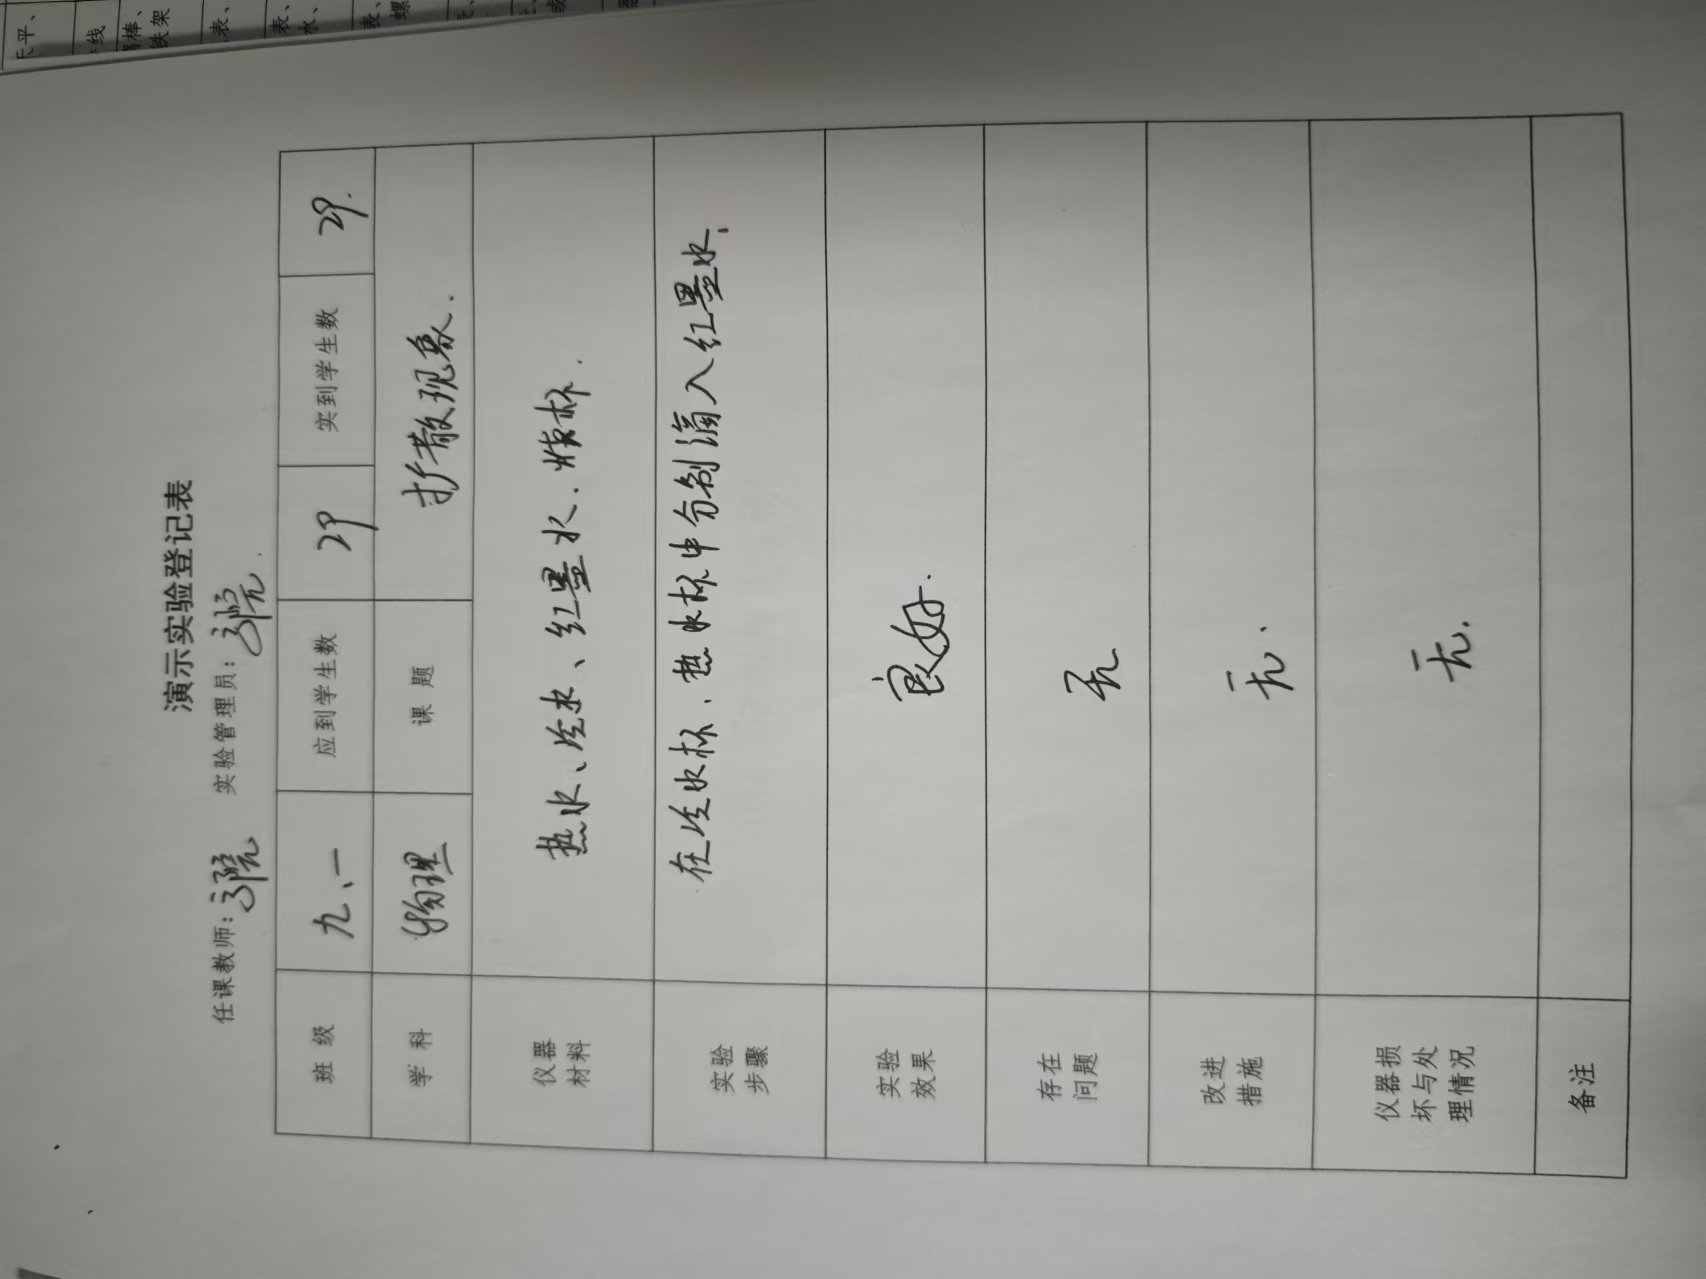 演示实验登记表
任课教师: 实验管理员:
班 级 九、一 应到学生数 29 实到学生数 29.
学 科 物理 课 题 扩散现象.
仪器
材料
热水、冷水、红墨水.烧杯.
实验
步骤
在冷水杯、热水杯中分别滴入红墨水.
实验
效果
良好.
存在
问题
无
改进
措施
无.
仪器损
坏与处
理情况
无.
备注